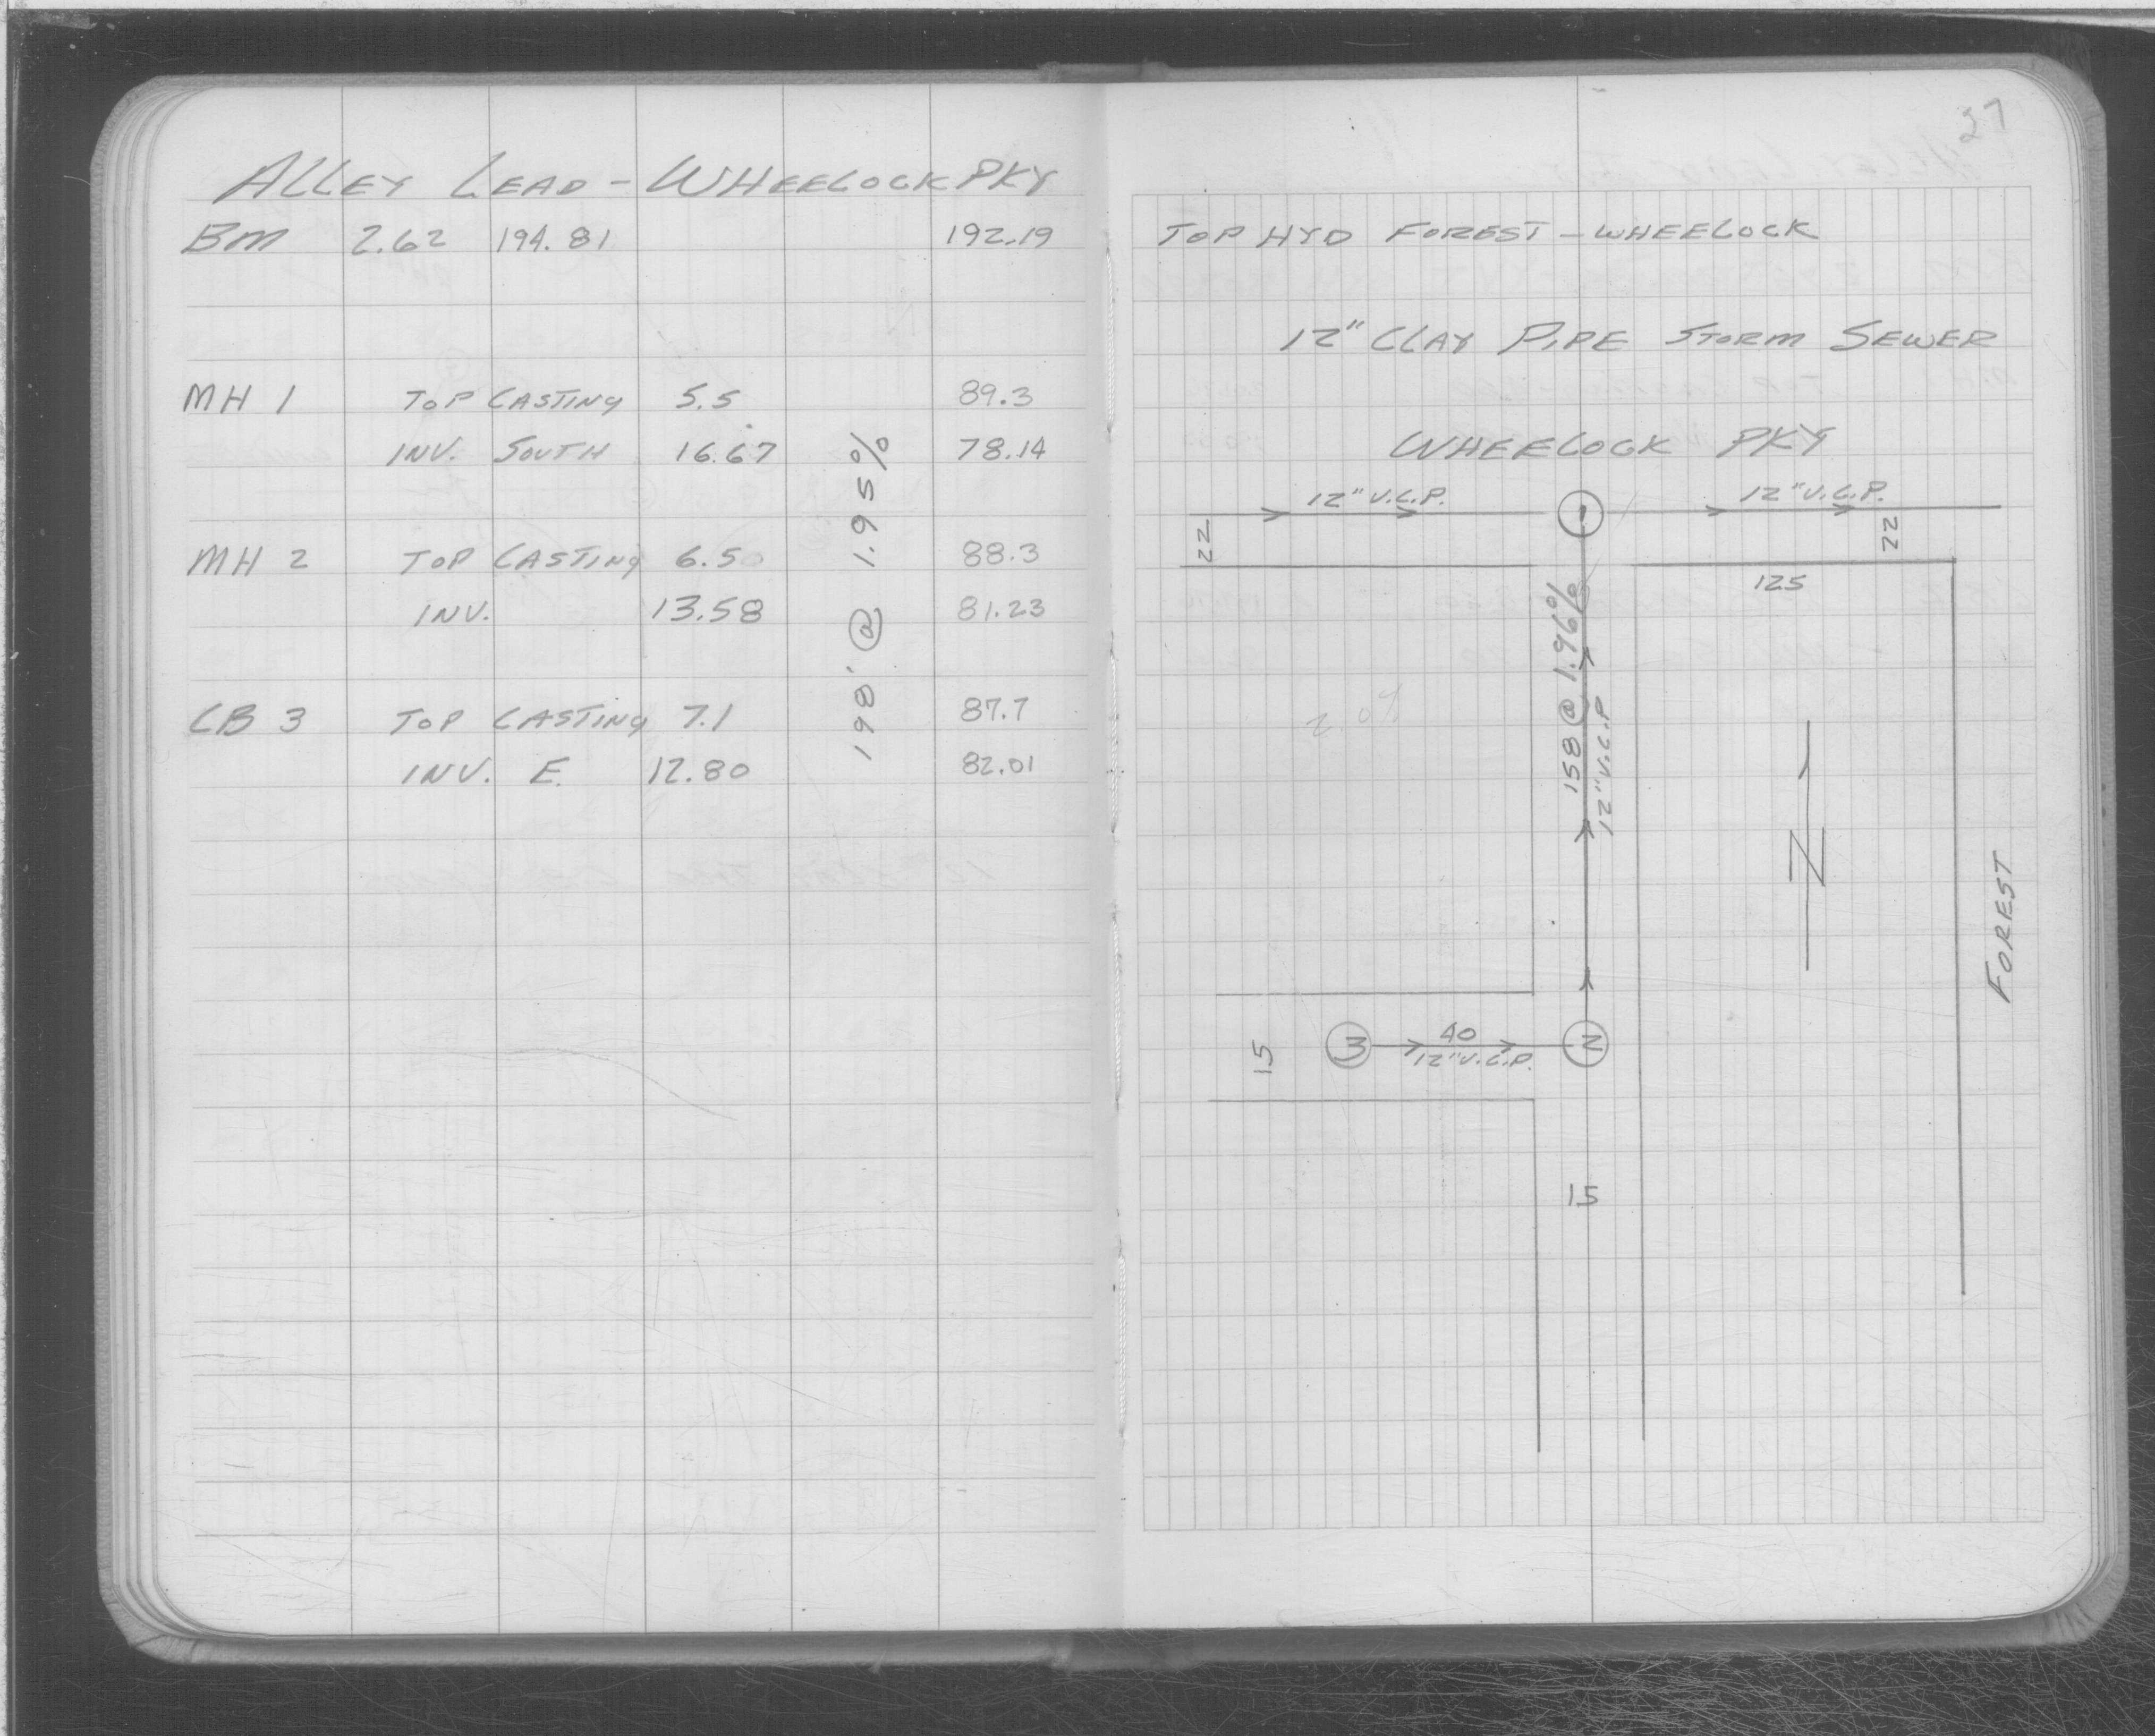 ALLEY LEAD - WHEELOCK PKY
BM 2.62 194.81 192.19
MH 1 TOP CASTING 5.5 89.3
INV. SOUTH 16.67 78.14
MH 2 TOP CASTING 6.50 88.3
INV. 13.58 81.23
CB 3 TOP CASTING 7.1 87.7
INV. E. 12.80 82.01
198' @ 1.95%
27
TOP HYD FOREST - WHEELOCK
12" CLAY PIPE STORM SEWER
WHEELOCK PKY
12" V.C.P. 12" V.C.P.
22 1 22
125
158 @ 1.96%
12" V.C.P
N
FOREST
15 3 40 2
12" V.C.P.
15